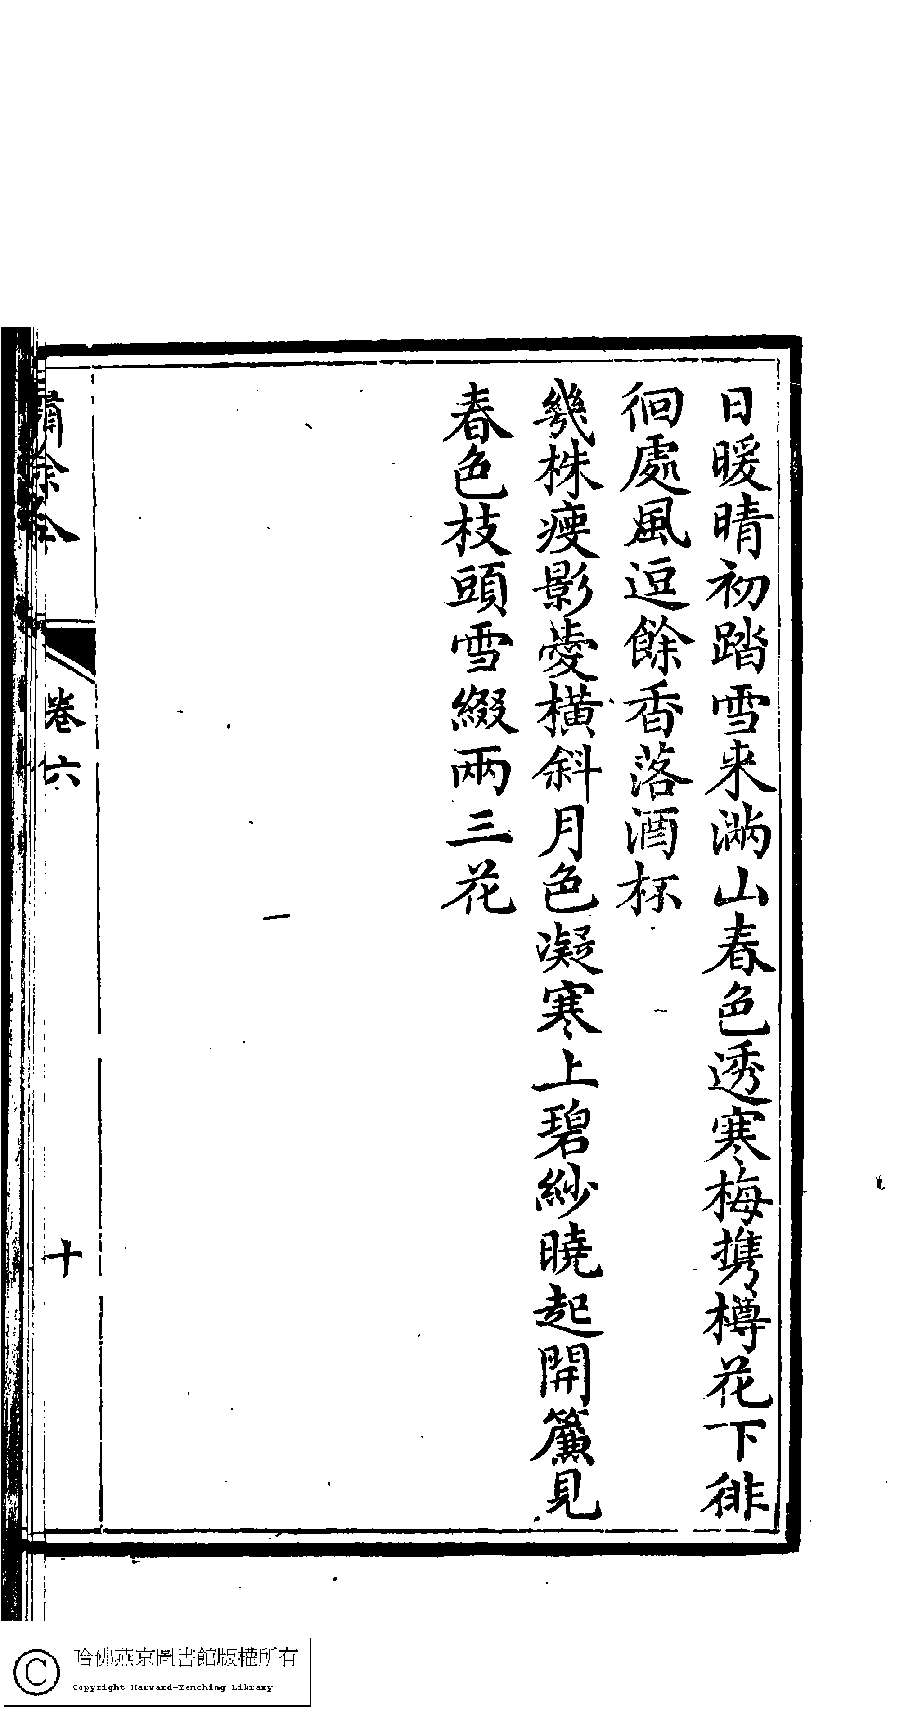 日暖晴初踏雪来滿山春色透寒梅携樽花下徘
徊處風逗餘香落酒杯
幾株瘦影憂橫斜月色凝寒上碧紗曉起開簾見
春色枝頭雪綴兩三花
繡餘吟
卷六
十
哈佛燕京圖書館版權所有
Copyright Harvard-Yenching Library